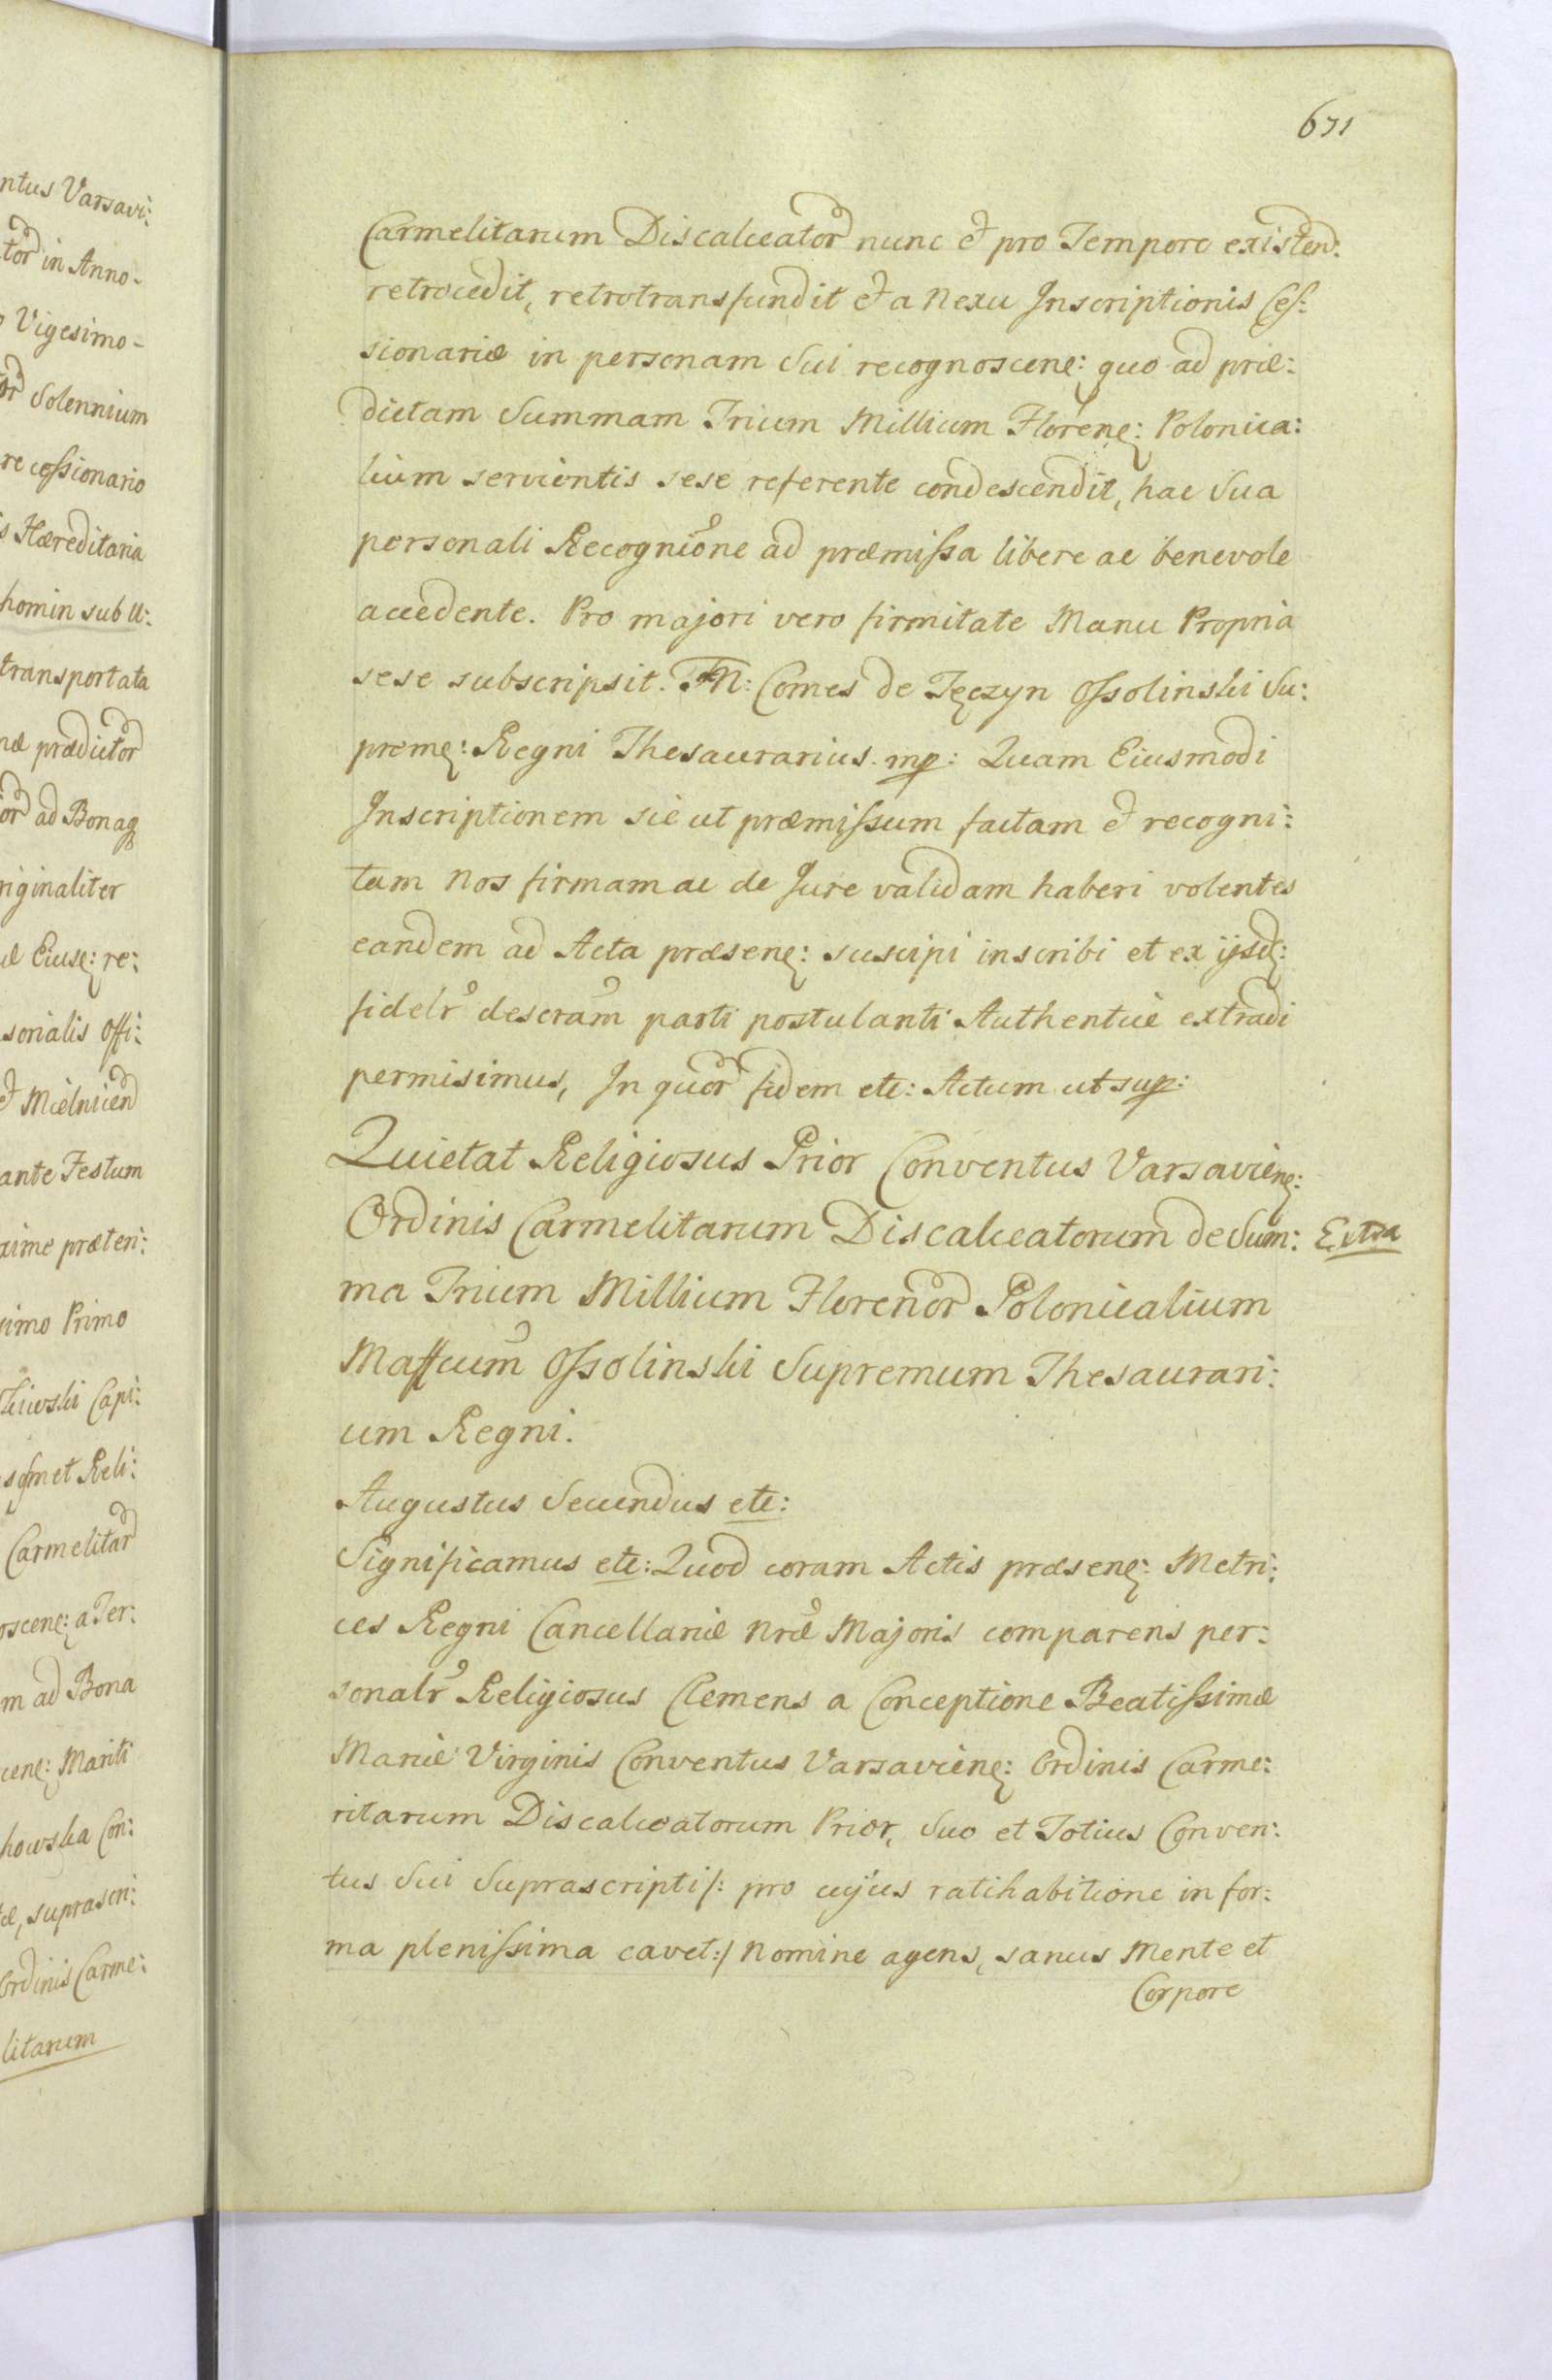 ntus Varsavi:
tor in Anno-
Vigesimo-
Solennium
re cessionario
s Hæreditaria
homin sub U:
transportata
næ prædictor
ior ad Bonaq
riginaliter
Eiusę: re:
sorialis Offi:
et Mielnicen
ante Festum
xime præteri:
simo Primo
Capi:
et Reli:
Carmelitar
oscenę: a Ter:
m ad Bona
cenę: Mariti
howska Con:
suprascri:
Ordinis Carme:
litarum
671
Carmelitarum Discalceator nunc et pro Tempore existen:
retrocedit, retrotransfundit et a nexu Inscriptionis Ces:
sionariæ in personam Sui recognoscenę: quo ad præ:
dictam Summam Trium Millium Florenę: Polonica:
lium servientis sese referente condescendit, hac Sua
personali Recognione ad præmissa libere ac benevole
accedente. Pro majori vero firmitate Manu Propria
sese subscripsit. FM: Comes de Tęczyn Ossolinski Su:
premę: Regni Thesaurarius. mp: Quam Eiusmodi
Inscriptionem sic ut præmissum factam et recogni:
tam Nos firmam ac de Jure validam haberi volentes
eandem ad Acta præsenę: suscipi inscribi et ex ijsdę:
fidelr descram parti postulanti Authentice extradi
permisimus, In quor fidem etc: Actum ut sup:
Quietat Religiosus Prior Conventus Varsavienę:
Ordinis Carmelitarum Discalceatorum de Sum: Extra
ma Trium Millium Florenor Polonicalium
Maffcum Ossolinski Supremum Thesaurari:
um Regni.
Augustus Secundus etc:
Significamus etc: Quod coram Actis præsenę: Metri:
ces Regni Cancellariæ Nræ Majoris comparens per:
sonalr Religiosus Clemens a Conceptione Beatissimæ
Mariæ Virginis Conventus Varsavienę: Ordinis Carme:
ritarum Discalceatorum Prior, Suo et Totius Conven:
tus Sui Suprascripti /: pro cujus ratihabitione in for:
ma plenissima cavet :/ Nomine agens, sanus Mente et
Corpore